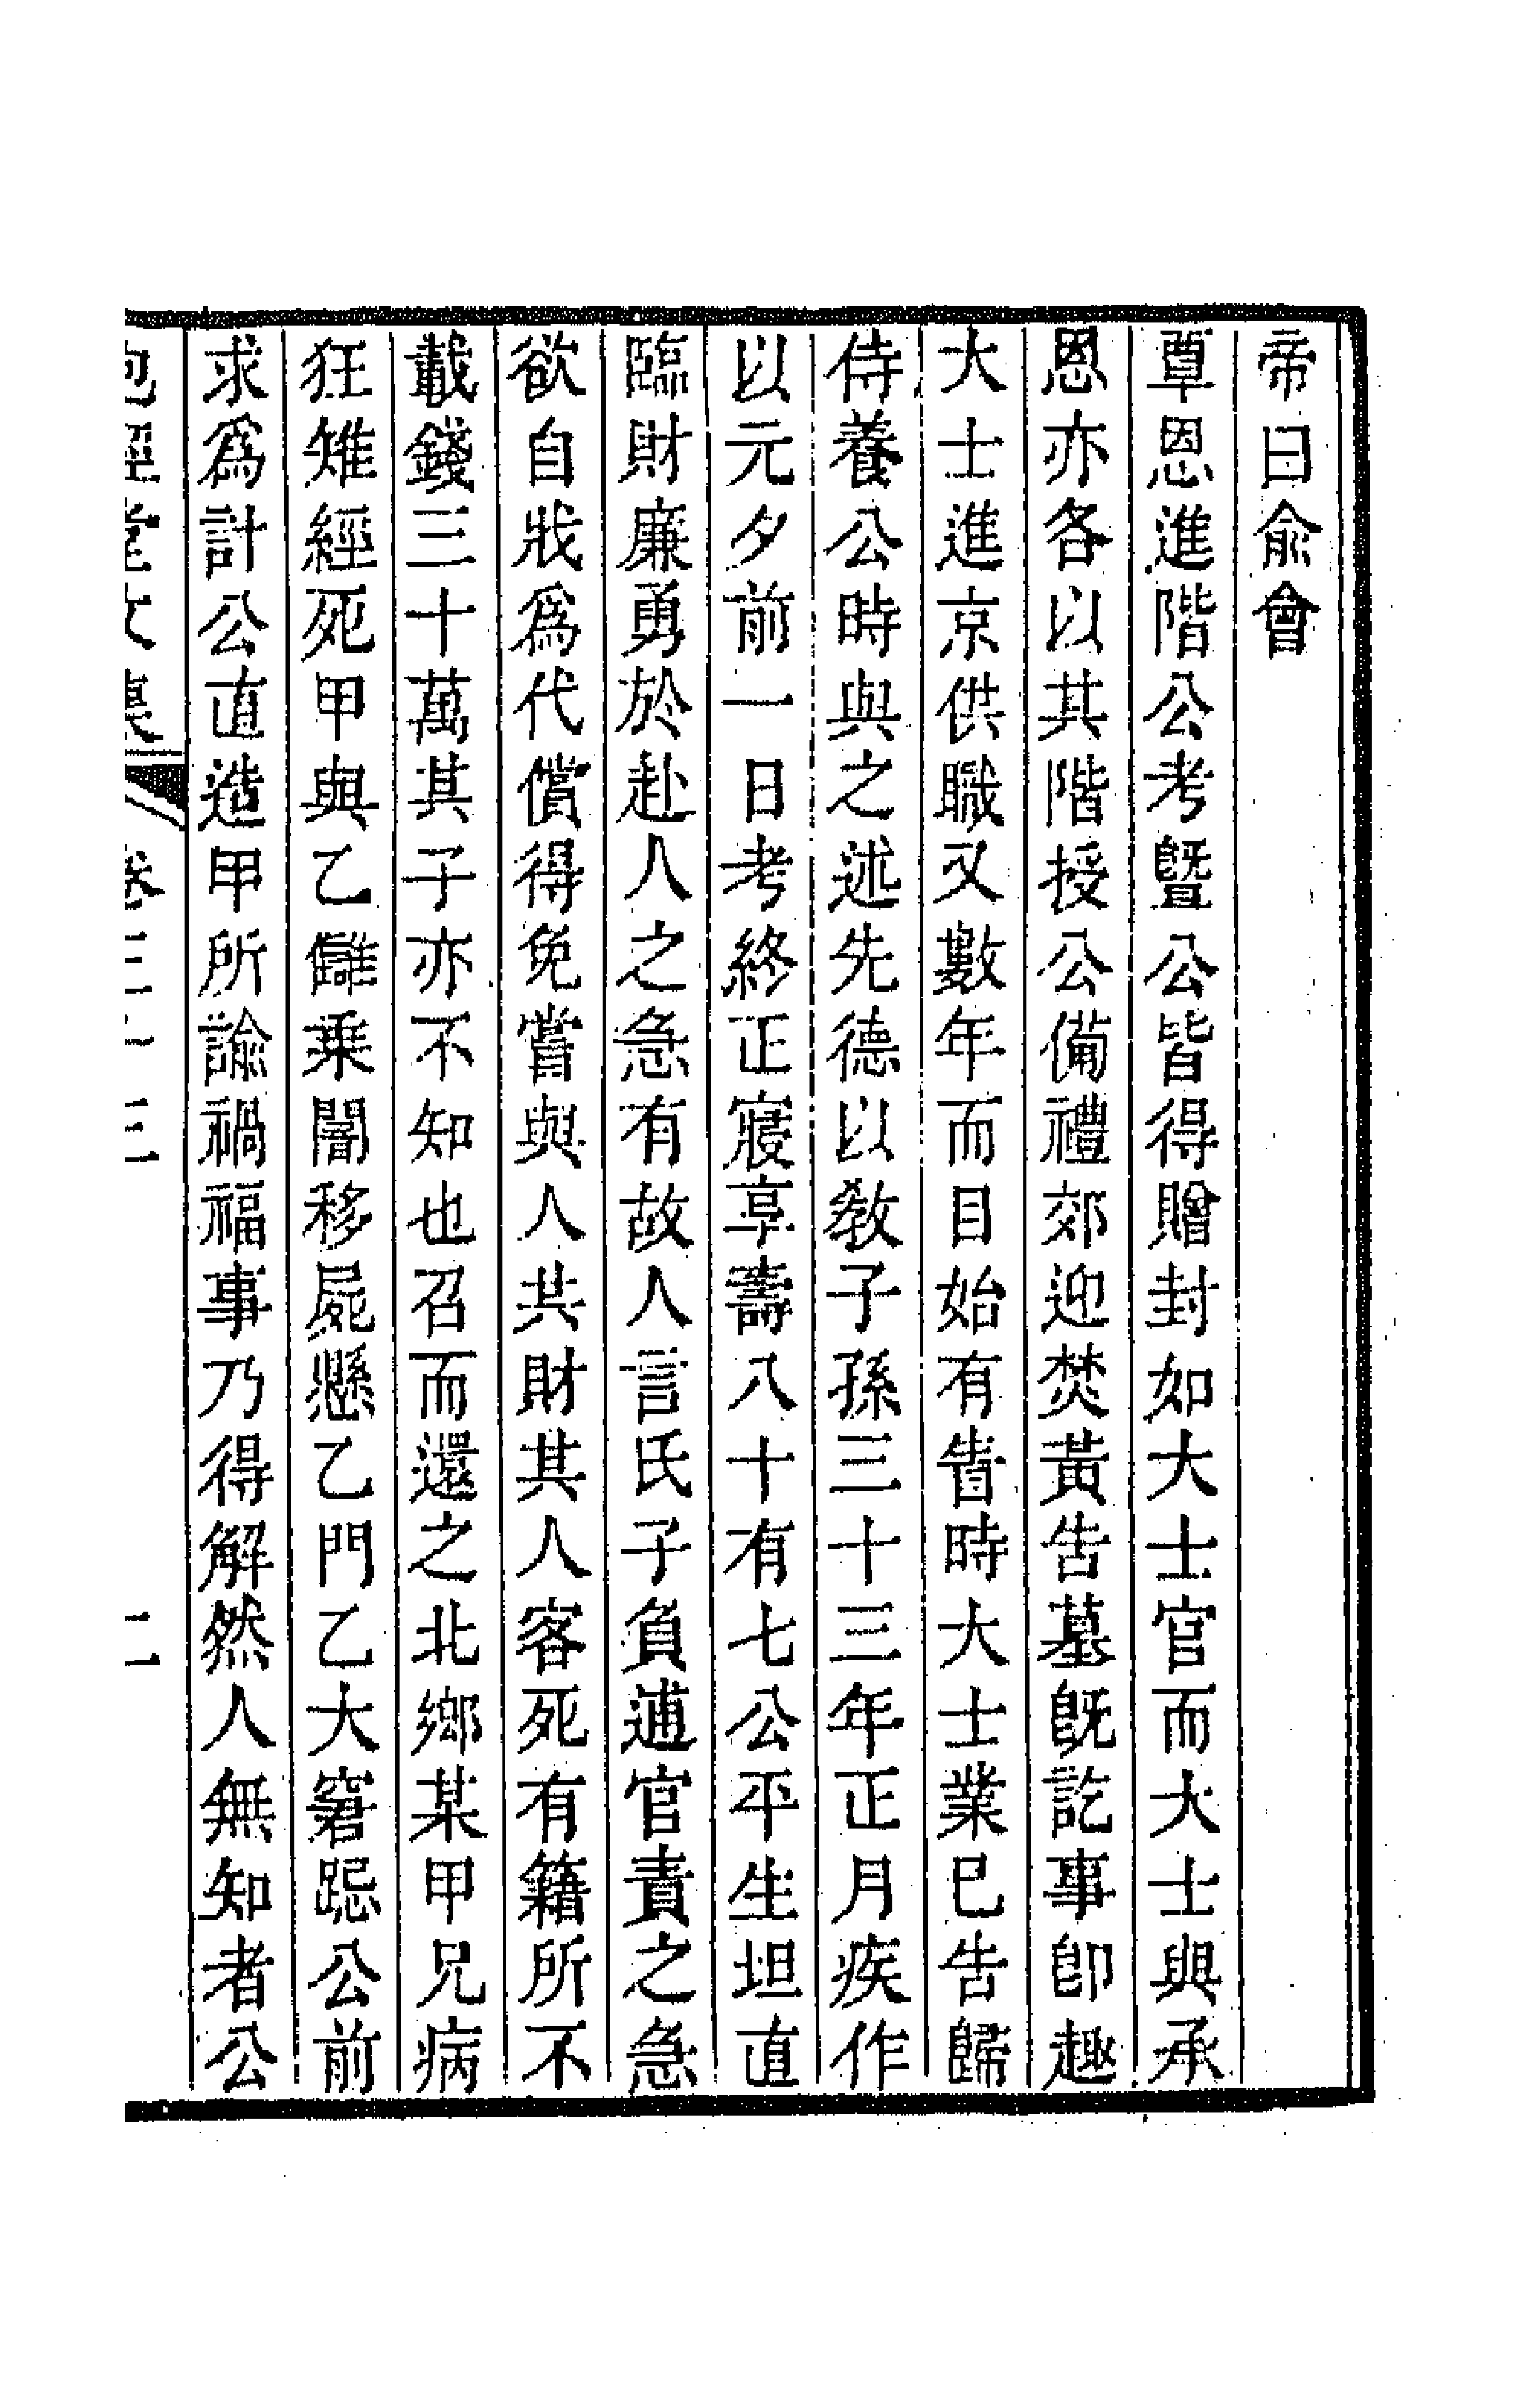 帝曰俞會
覃恩進階公考曁公皆得贈封如大士官而大士與承
恩亦各以其階授公備禮郊迎焚黃告墓旣訖事卽趣
大士進京供職又數年而目始有眚時大士業巳告歸
侍養公時與之述先德以敎子孫三十三年正月疾作
以元夕前一日考終正寢享壽八十有七公平生坦直
臨財廉勇於赴人之急有故人言氏子負逋官責之急
欲自戕爲代償得免嘗與人共財其人客死有籍所不
載錢三十萬其子亦不知也召而還之北鄉某甲兄病
狂雉經死甲與乙讎乘闇移屍懸乙門乙大窘跽公前
求爲計公直造甲所諭禍福事乃得解然人無知者公
抱經堂文集 卷三十三 二